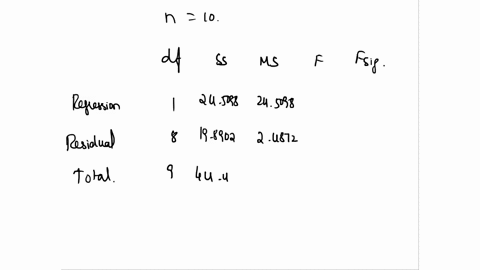 n = 10.
df SS MS F Fsig.
Regression 1 24.5098 24.5098
Residual 8 19.8902 2.4872
Total. 9 44.4